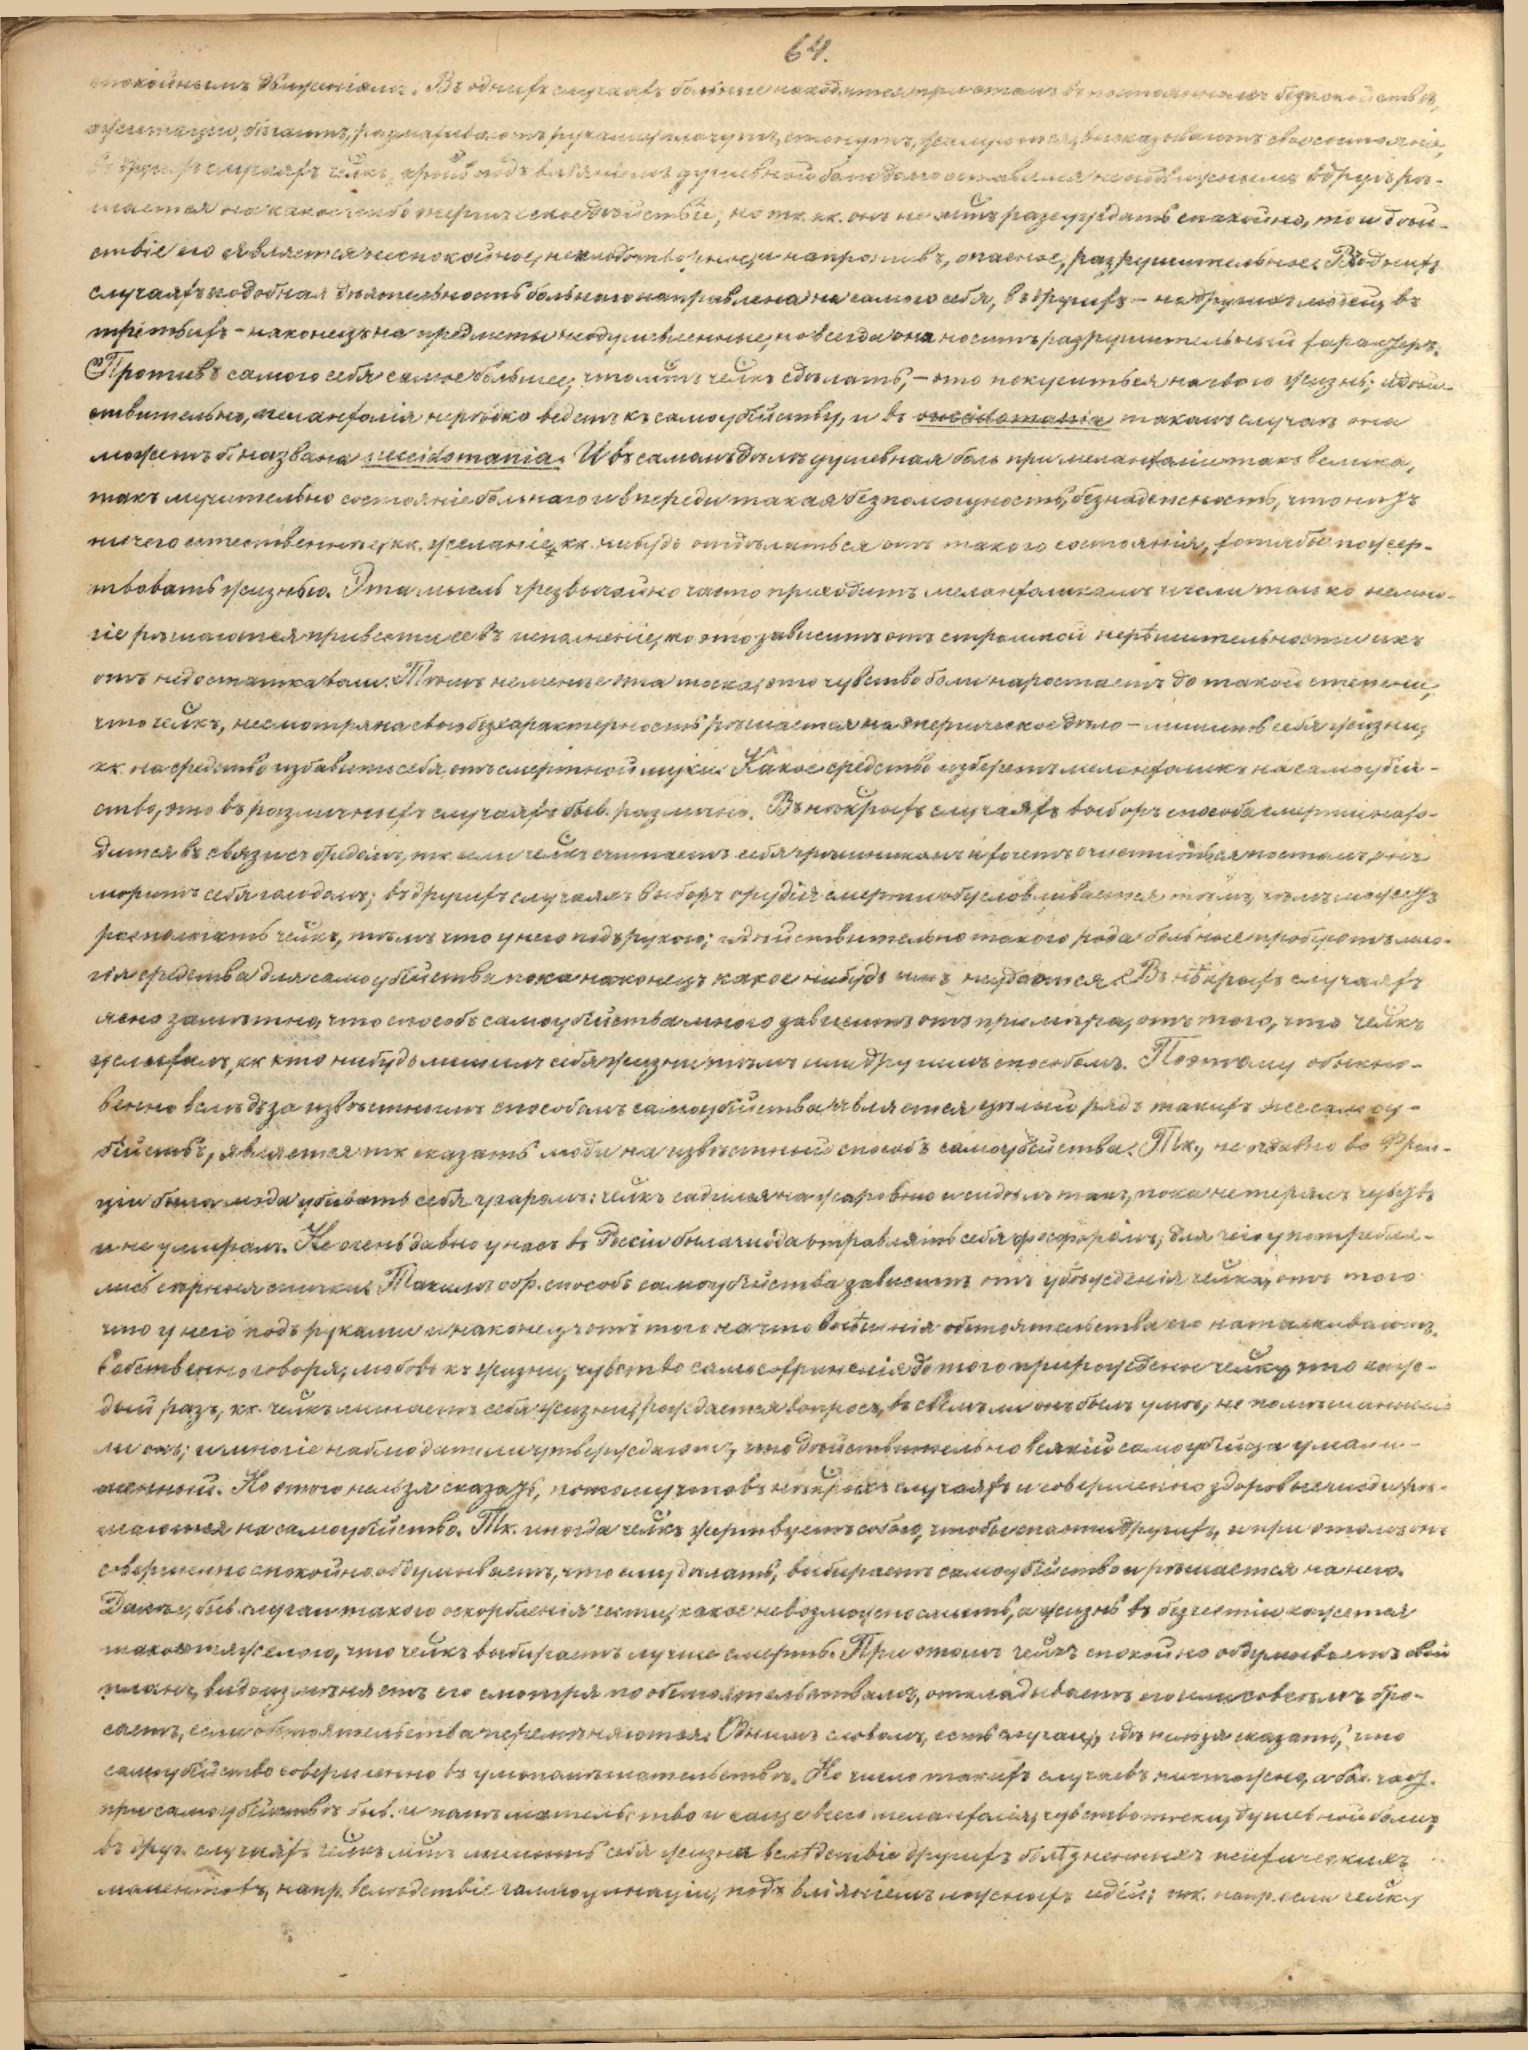 64.
спокойнымъ движеніямъ. Въ однихъ случаяхъ больные находятся при этомъ въ постоянномъ безпокойствѣ,
ажитаціи, бѣгаютъ, размахиваютъ руками, плачутъ, стонутъ, жалуются, высказываютъ свое состояніе,
въ другихъ случаяхъ челкъ, подъ вліяніемъ душевной боли долго остававшійся неподвижнымъ вдругъ рѣ-
шается на какое либо энергическое дѣйствіе, но тк. кк. онъ не мтъ разсуждать спокойно, то и дѣй-
ствіе его является неспокойное, неплодотворное, и напротивъ, опасное, разрушительное. Въ однихъ
случаяхъ подобная дѣятельность больнаго направлена на самого себя, въ другихъ – на другихъ людей, въ
третьихъ – наконецъ на предметы неодушевленные, но всегда она носитъ разрушительный характеръ.
Противъ самого себя самое большее, что мтъ челкъ сдѣлать, – это покуситься на свою жизнь; и дѣй-
ствительно, меланхолія нерѣдко ведетъ къ самоубійству, и въ такомъ случаѣ она
можетъ б. названа suicidomania. И въ самомъ дѣлѣ душевная боль при меланхоліи такъ велика,
такъ мучительно состояніе больнаго и впереди такая безпомощность, безнадежность, что нѣтъ
ничего естественнѣе, кк. желаніе, кк. нибудь отдѣлаться отъ такого состоянія, хотя бы пожер-
твовать жизнью. Эта мысль чрезвычайно часто приходитъ меланхоликамъ и если только немно-
гіе рѣшаются привести ее въ исполненіе, то это зависитъ отъ страшной нерѣшительности ихъ
отъ недостатка воли. Тѣмъ не менѣе эта тоска, это чувство боли наростаетъ до такой степени,
что челкъ, несмотря на свою безхарактерность рѣшается на энергическое дѣло – лишить себя жизни,
кк. на средство избавить себя отъ смертной муки. Какое средство изберетъ меланхоликъ на самоубій-
ство, это въ различныхъ случаяхъ быв. различно. Въ нѣкрыхъ случаяхъ выборъ способа смерти нахо-
дится въ связи съ бредомъ, тк. если челкъ считаетъ себя грѣшникомъ и хочетъ очиститься постомъ, онъ
моритъ себя голодомъ; въ другихъ случаяхъ выборъ орудія смерти обусловливается тѣмъ, чѣмъ можетъ
располагать челкъ, тѣмъ что у него подъ рукою; и дѣйствительно такого рода больные пробуютъ мно-
гія средства для самоубійства пока наконецъ какое нибудь имъ не удастся. Въ нѣкрыхъ случаяхъ
ясно замѣтно, что способъ самоубійства много зависитъ отъ примѣра, отъ того, что челкъ
услыхалъ, кк кто нибудь лишилъ себя жизни тѣмъ или другимъ способомъ. Поэтому обыкно-
венно вслѣдъ за извѣстнымъ способомъ самоубійства является цѣлый рядъ такихъ же самоу-
бійствъ, является тк сказать мода на извѣстный способъ самоубійства. Тк., не очень давно во Фран-
ціи была мода убивать себя угаромъ: челкъ садился на жаровню и сидѣлъ такъ, пока не терялъ чувствъ
и не умиралъ. Не очень давно у насъ въ Россіи была мода отравлять себя фосфоромъ; для чего употребля-
лись сѣрныя спички. Такимъ обр. способъ самоубійства зависитъ отъ убѣжденія челка, отъ того
что у него подъ руками и наконецъ отъ того на что внѣшнія обстоятельства его наталкиваютъ.
Собственно говоря, любовь къ жизни, чувство самосохраненія до того прирождены челку, что каж-
дый разъ, кк. челкъ лишаетъ себя жизни, рождается вопросъ, въ своемъ ли онъ былъ умѣ, не помѣшанный
ли онъ; и многіе наблюдатели утверждаютъ, что дѣйствительно всякій самоубійца умали-
шенный. Но этого нельзя сказать, потому что въ нѣкрыхъ случаяхъ и совершенно здоровые люди рѣ-
шаются на самоубійство. Тк. иногда челкъ жертвуетъ собою, чтобы спасти другихъ, и при этомъ онъ
совершенно спокойно обдумываетъ, что ему дѣлать, выбираетъ самоубійство и рѣшается на него.
Далѣе, быв. случаи такого оскорбленія чести, какое невозможно смыть, а жизнь въ безчестіи кажется
такою тяжелою, что челкъ выбираетъ лучше смерть. При этомъ челкъ спокойно обдумываетъ свой
планъ, видоизмѣняетъ его смотря по обстоятельствамъ, откладываетъ его или совсѣмъ бро-
саетъ, если обстоятельства перемѣняются. Однимъ словомъ, есть случаи, гдѣ нельзя сказать, что
самоубійство совершенно въ умопомѣшательствѣ. Но число такихъ случаевъ ничтожно, а бол. част.
при самоубійствѣ быв. и помѣшательство и чаще всего меланхолія, чувство тоски, душевной боли,
въ друг. случаяхъ челкъ мтъ лишить себя жизни вслѣдствіе другихъ болѣзненныхъ психическихъ
моментовъ, напр. вслѣдствіе галлюцинаціи, подъ вліяніемъ ложныхъ идей; тк. напр. если челку